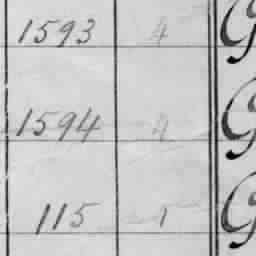 1593 4 G
1594 4 G
115 1 G